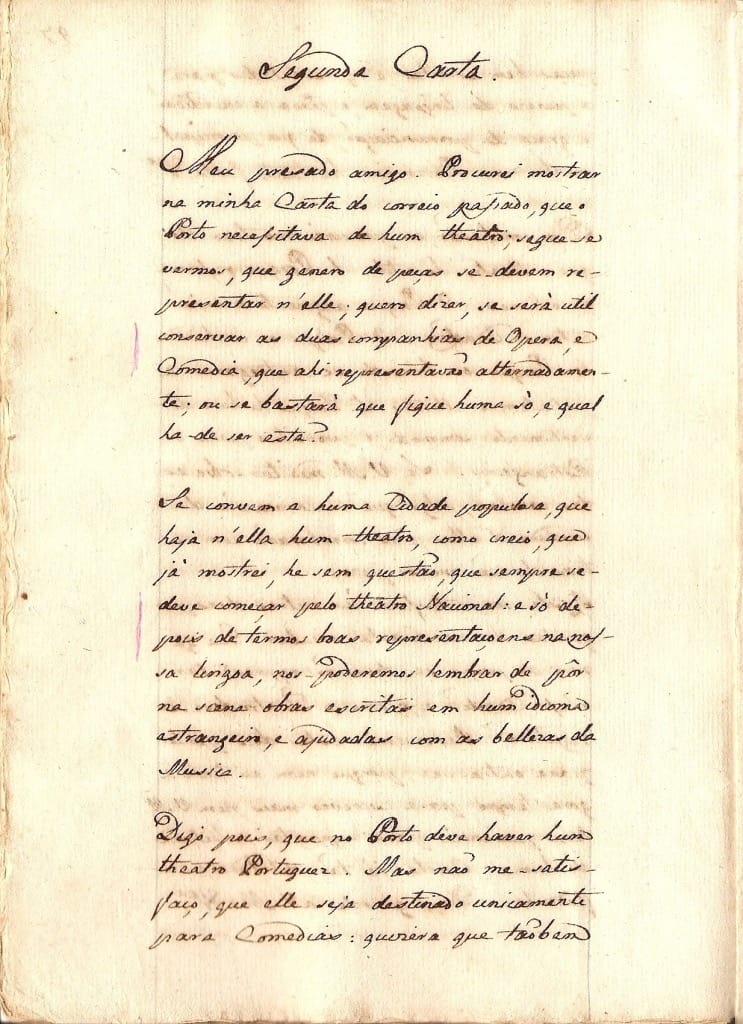 Segunda Carta.
Meu presado amigo. Procurei mostrar
na minha Carta do correio passado, que o
Porto necessitava de hum theatro; segue-se
vermos, que genero de peças se-devem re-
presentar n'elle; quero dizer, se serà util
conservar as duas companhias de Opera, e
Comedia, que ahi representavaõ alternadamen-
te; ou se bastarà que fique huma sò, e qual
ha-de ser esta?
Se convem a huma Cidade populosa, que
haja n'ella hum theatro, como creio, que
jà mostrei, he sem questaõ, que sempre se-
deve começar pelo theatro Nacional: e sò de-
pois de termos boas representaçoens na nos-
sa lingoa, nos-poderemos lembrar de pôr
na scena obras escritas em hum idioma
estrangeiro, e ajudadas com as bellezas da
Musica.
Digo pois, que no Porto deve haver hum
theatro Portuguez. Mas naõ me-satis-
faço, que elle seja destinado unicamente
para Comedias: quizera que taõbem